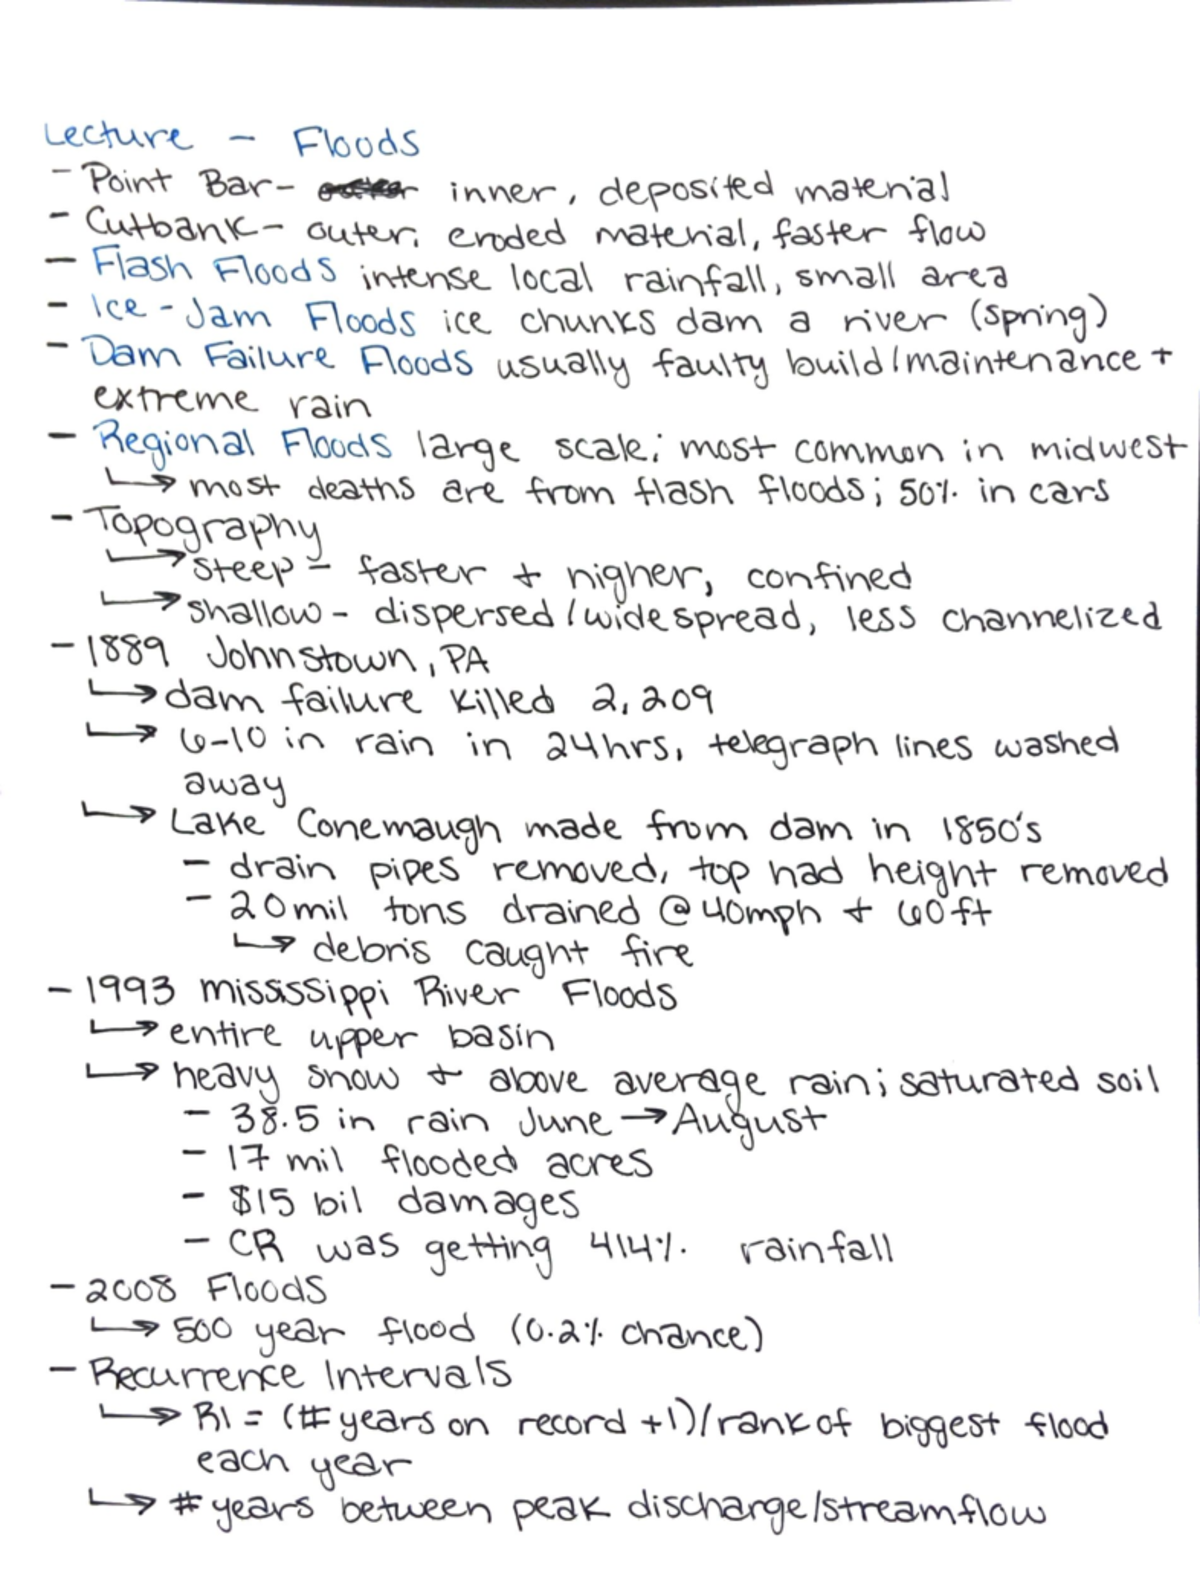 Lecture - Floods
- Point Bar- inner, deposited material
- Cutbank- outer, eroded material, faster flow
- Flash Floods intense local rainfall, small area
- Ice-Jam Floods ice chunks dam a river (spring)
- Dam Failure Floods usually faulty build/maintenance +
extreme rain
- Regional Floods large scale; most common in midwest
↳ most deaths are from flash floods; 50% in cars
- Topography
↳ steep - faster + higher, confined
↳ shallow - dispersed/widespread, less channelized
- 1889 Johnstown, PA
↳ dam failure killed 2,209
↳ 6-10 in rain in 24hrs, telegraph lines washed
away
↳ Lake Conemaugh made from dam in 1850's
- drain pipes removed, top had height removed
- 20mil tons drained @ 40mph + 60ft
↳ debris caught fire
- 1993 Mississippi River Floods
↳ entire upper basin
↳ heavy snow + above average rain; saturated soil
- 38.5 in rain June → August
- 17 mil flooded acres
- $15 bil damages
- CR was getting 414% rainfall
- 2008 Floods
↳ 500 year flood (0.2% chance)
- Recurrence Intervals
↳ RI = (# years on record +1)/rank of biggest flood
each year
↳ # years between peak discharge/streamflow